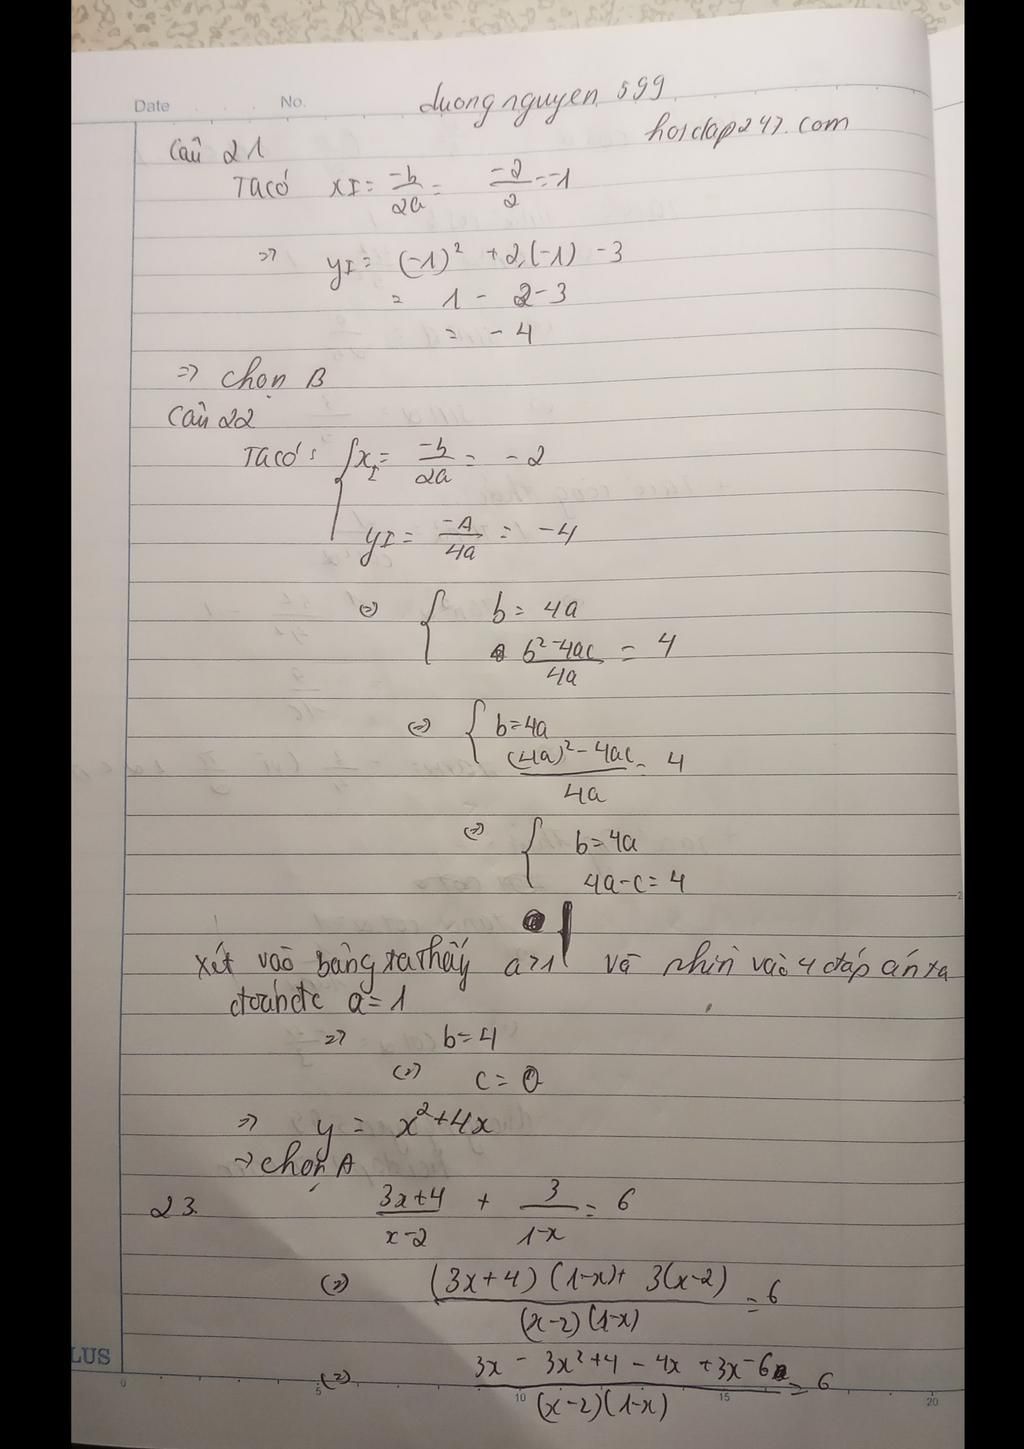 Date No. duongnguyen 599
hoidap247.com
Câu 21
Ta có xI = -b/2a = -2/2 = -1
=> yI = (-1)² + 2.(-1) - 3
= 1 - 2 - 3
= - 4
=> chọn B
Câu 22
Ta có: { xI = -b/2a = - 2
yI = -Δ/4a = - 4
(=) { b = 4a
(b² - 4ac)/4a = 4
(=) { b = 4a
((4a)² - 4ac)/4a = 4
(=) { b = 4a
4a - c = 4
xét vào bảng ta thấy a > 1 và nhìn vào 4 đáp án ta
đoán đc a = 1
=> b = 4
(=) c = 0
=> y = x² + 4x
=> chọn A
23. (3x+4)/(x-2) + 3/(1-x) = 6
(=) ((3x+4)(1-x) + 3(x-2))/((x-2)(1-x)) = 6
(=) (3x - 3x² + 4 - 4x + 3x - 6)/((x-2)(1-x)) = 6
LUS
0 5 10 15 20